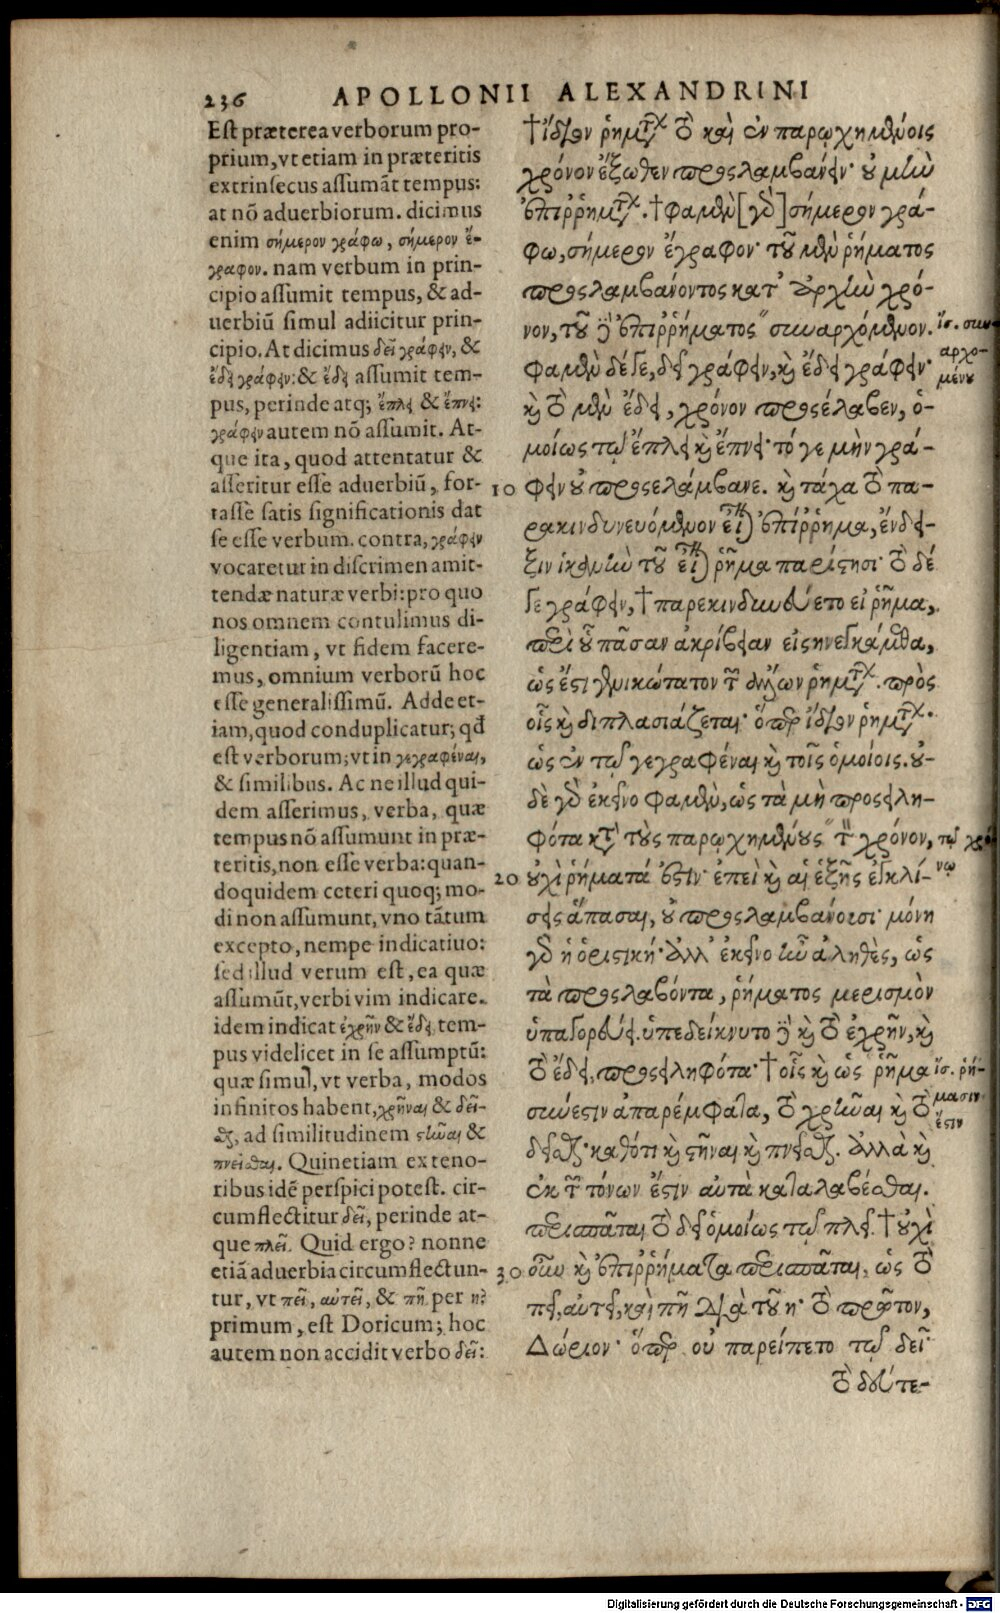 236 APOLLONII ALEXANDRINI
Est præterea verborum pro-
prium, vt etiam in præteritis
extrinsecus assumãt tempus:
at nõ aduerbiorum. dicimus
enim σήμερον γράφω, σήμερον ἔ-
γραφον. nam verbum in prin-
cipio assumit tempus, & ad-
uerbiũ simul adiicitur prin-
cipio. At dicimus δεῖ γράφειν, &
ἔδει γράφειν: & ἔδει assumit tem-
pus, perinde atq; ἔπλει & ἔπνει:
γράφειν autem nõ assumit. At-
que ita, quod attentatur &
asseritur esse aduerbiũ, for-
tasse satis significationis dat
se esse verbum. contra, γράφειν
vocaretur in discrimen amit-
tendæ naturæ verbi: pro quo
nos omnem contulimus di-
ligentiam, vt fidem facere-
mus, omnium verborũ hoc
esse generalissimũ. Adde et-
iam, quod conduplicatur; qđ
est verborum; vt in γεγραφέναι,
& similibus. Ac ne illud qui-
dem asserimus, verba, quæ
tempus nõ assumunt in præ-
teritis, non esse verba: quan-
doquidem ceteri quoq; mo-
di non assumunt, vno tãtum
excepto, nempe indicatiuo:
sed illud verum est, ea quæ
assumũt, verbi vim indicare.
idem indicat ἐχρῆν & ἔδει tem-
pus videlicet in se assumptũ:
quæ simul, vt verba, modos
infinitos habent, χρῆναι & δεῖ-
σθαι, ad similitudinem στῆναι &
πνεῖσθαι. Quinetiam ex teno-
ribus idẽ perspici potest. cir-
cumflectitur δεῖ, perinde at-
que πλεῖ. Quid ergo? nonne
etiã aduerbia circumflectun-
tur, vt πεῖ, αὐτεῖ, & πῆ per η?
primum, est Doricum; hoc
autem non accidit verbo δεῖ:
†ἴδιον ῥημάτων τὸ καὶ ἐν παρῳχημένοις
χρόνον ἔξωθεν προσλαμβάνειν· οὐ μὴν
ἐπιῤῥημάτων. †φαμὲν [γὰρ] σήμερον γρά-
φω, σήμερον ἔγραφον· τοῦ μὲν ῥήματος
προσλαμβάνοντος κατ' ἀρχὴν χρό-
νον, τοῦ δὲ ἐπιῤῥήματος "συναρχόμενον. ἴσ. συν-
αρχο-
μένου
φαμὲν δέ γε, δεῖ γράφειν, καὶ ἔδει γράφειν·
καὶ τὸ μὲν ἔδει, χρόνον προσέλαβεν, ὁ-
μοίως τῷ ἔπλει καὶ ἔπνει· τό γε μὴν γρά-
10 φειν οὐ προσελάμβανε. καὶ τάχα τὸ πα-
ρακινδυνευόμενον εἶναι ἐπίῤῥημα, ἔνδει-
ξιν ἱκανὴν τοῦ εἶναι ῥῆμα παρίστησι· τὸ δέ
γε γράφειν, †παρεκινδυνεύετο εἰ ῥῆμα,
περὶ οὗ πᾶσαν ἀκρίβειαν εἰσηνεγκάμεθα,
ὡς ἔστι γενικώτατον τῶν ὅλων ῥημάτων. πρὸς
οἷς καὶ διπλασιάζεται· ὅπερ ἴδιον ῥημάτων.
ὡς ἐν τῷ γεγραφέναι καὶ τοῖς ὁμοίοις. οὐ-
δὲ γὰρ ἐκεῖνο φαμὲν, ὡς τὰ μὴ προσειλη-
φότα κατὰ τοὺς παρῳχημένους "τὸν χρόνον, τῷ χρό-
νῳ
20 οὐχὶ ῥήματά ἐστιν· ἐπεὶ καὶ αἱ ἑξῆς ἐγκλί-
σεις ἅπασαι, οὐ προσλαμβάνουσι· μόνη
γὰρ ἡ ὁριστική· ἀλλ' ἐκεῖνο ἦν ἀληθὲς, ὡς
τὰ προσλαβόντα, ῥήματος μερισμὸν
ὑπαγορεύει. ὑπεδείκνυτο δὲ καὶ τὸ ἐχρῆν, καὶ
τὸ ἔδει, προσειληφότα· †οἷς καὶ ὡς ῥῆμα ἴσ. ῥή-
μασιν
ἔστιν
συνέστιν ἀπαρέμφατα, τὸ χρῆναι καὶ τὸ
δεῖσθαι· καθότι καὶ στῆναι καὶ πνεῖσθαι. ἀλλὰ καὶ
ἐκ τῶν τόνων ἔστιν αὐτὰ καταλαβέσθαι.
περισπᾶται τὸ δεῖ ὁμοίως τῷ πλεῖ. †οὐχὶ
30 οὖν καὶ ἐπιῤῥήματα περισπᾶται, ὡς τὸ
πεῖ, αὐτεῖ, καὶ πῆ διὰ τοῦ η· τὸ πρῶτον,
Δώριον· ὅπερ οὐ παρείπετο τῷ δεῖ·
τὸ δεύτε-
Digitalisierung gefördert durch die Deutsche Forschungsgemeinschaft - DFG